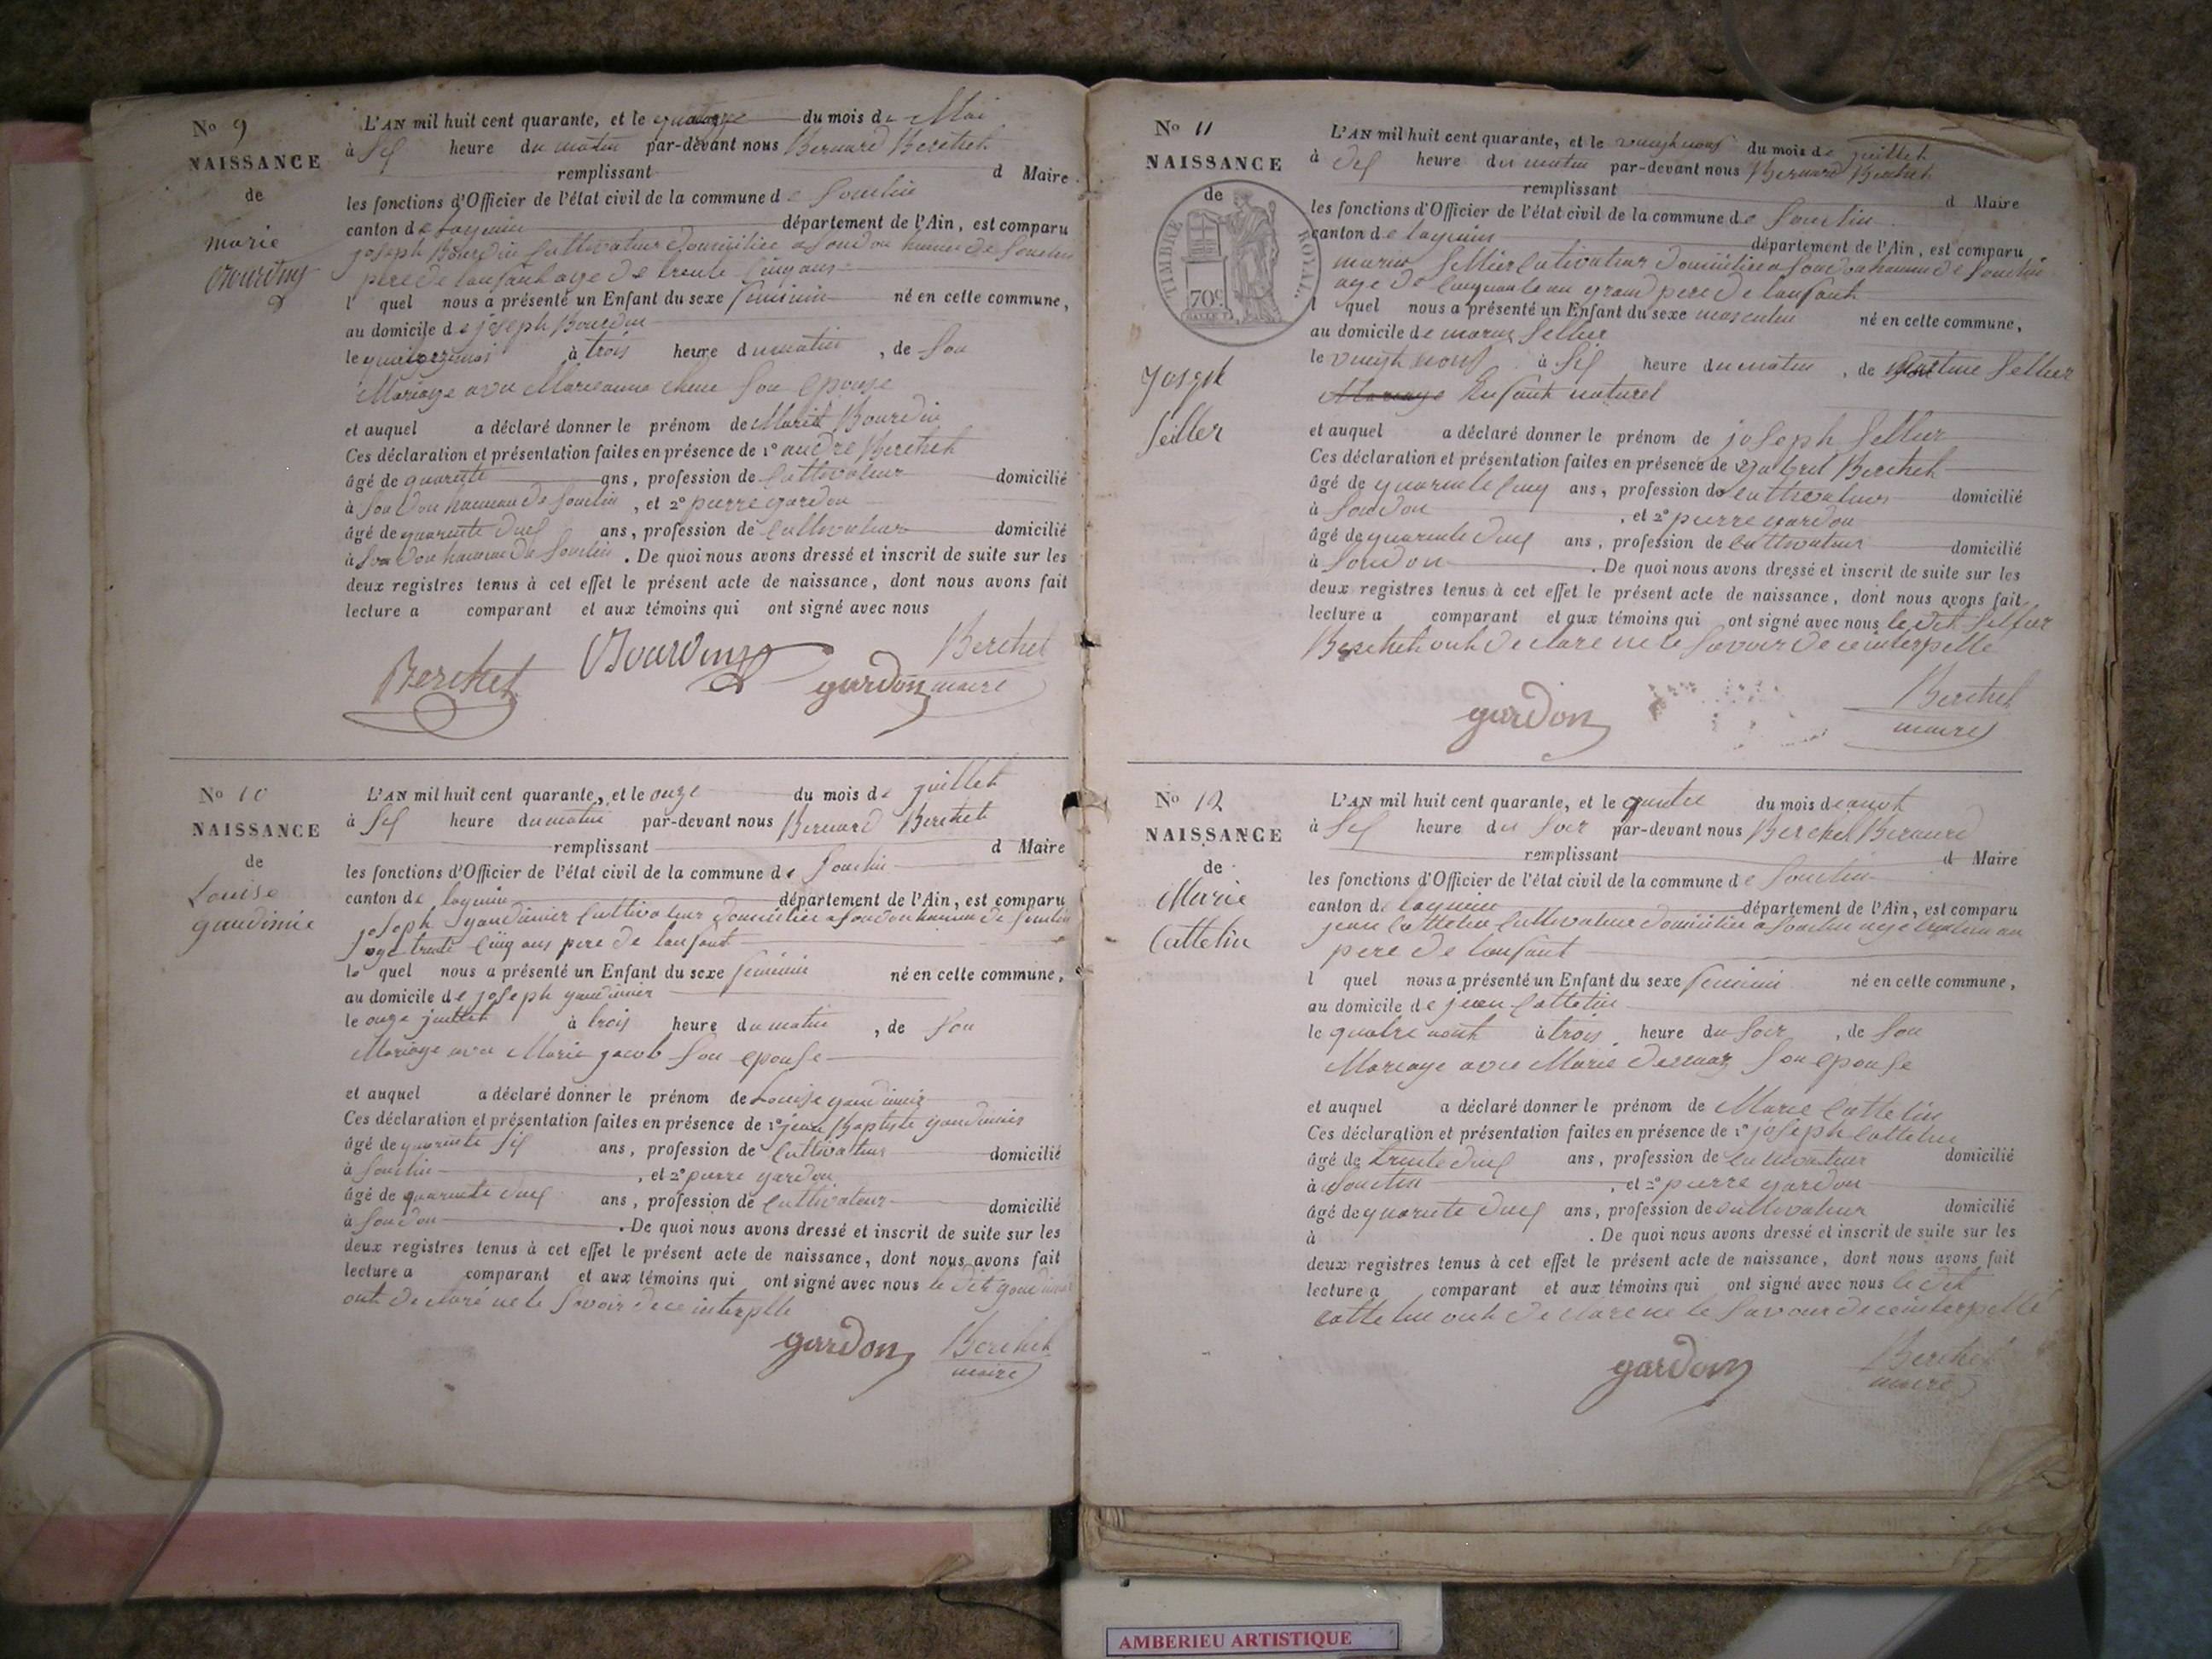 No 9
NAISSANCE
de
marie
Bourdin
L'AN mil huit cent quarante, et le quatorze du mois de Mai
à six heure du matin par-devant nous Bernard Berchet
remplissant d Maire
les fonctions d'Officier de l'état civil de la commune de Souclin
canton de lagnieu département de l'Ain, est comparu
joseph Bourdin Cultivateur domicilié a Soudon hameau de Souclin
pere de lanfant age de trente cinq ans
l quel nous a présenté un Enfant du sexe feminin né en cette commune,
au domicile de joseph Bourdin
le à trois heure du matin , de Son
Mariage avec Marianne Son epouse
et auquel a déclaré donner le prénom de Marie Bourdin
Ces déclaration et présentation faites en présence de 1° andre Berchet
âgé de quarente ans, profession de Cultivateur domicilié
à Soudon hameau de Souclin , et 2° pierre gardon
âgé de quarente deux ans, profession de Cultivateur domicilié
à Soudon hameau de Souclin . De quoi nous avons dressé et inscrit de suite sur les
deux registres tenus à cet effet le présent acte de naissance, dont nous avons fait
lecture a comparant et aux témoins qui ont signé avec nous
Berchet Bourdin gardon Berchet
maire
No 10
NAISSANCE
de
Louise
gaudinié
L'AN mil huit cent quarante, et le onze du mois de juillet
à six heure du matin par-devant nous Bernard Berchet
remplissant d Maire
les fonctions d'Officier de l'état civil de la commune de Souclin
canton de lagnieu département de l'Ain, est comparu
joseph gaudinier Cultivateur domicilié a Soudon hameau de Souclin
age trente cinq ans pere de lanfant
le quel nous a présenté un Enfant du sexe feminin né en cette commune,
au domicile de joseph gaudinier
le onze juillet à trois heure du matin , de Son
Mariage avec Marie jacob Son epouse
et auquel a déclaré donner le prénom de Louise gaudinier
Ces déclaration et présentation faites en présence de 1° jean Baptiste gaudinier
âgé de quarente six ans, profession de Cultivateur domicilié
à Souclin , et 2° pierre gardon
âgé de quarente deux ans, profession de Cultivateur domicilié
à Soudon . De quoi nous avons dressé et inscrit de suite sur les
deux registres tenus à cet effet le présent acte de naissance, dont nous avons fait
lecture a comparant et aux témoins qui ont signé avec nous le dit gaudinier
ont declaré ne le Savoir de ce interpelle
gardon Berchet
maire
No 11
NAISSANCE
de
TIMBRE ROYAL
70c
Joseph
Seiller
L'AN mil huit cent quarante, et le vingh nouf du mois de juillet
à dix heure du matin par-devant nous Bernard Berchet
remplissant d Maire
les fonctions d'Officier de l'état civil de la commune de Souclin
canton de lagnieu département de l'Ain, est comparu
Sellier Cultivateur domicilié a Soudon hameau de Souclin
age de Cinquante an grand pere de lanfant
l quel nous a présenté un Enfant du sexe masculin né en cette commune,
au domicile de Sellier
le vingh nouf à six heure du matin , de Sellier
Mariage Enfant naturel
et auquel a déclaré donner le prénom de joseph Sellier
Ces déclaration et présentation faites en présence de gabriel Berchet
âgé de quarente cinq ans, profession de Cultivateur domicilié
à Soudon , et 2° pierre gardon
âgé de quarente deux ans, profession de Cultivateur domicilié
à Soudon . De quoi nous avons dressé et inscrit de suite sur les
deux registres tenus à cet effet le présent acte de naissance, dont nous avons fait
lecture a comparant et aux témoins qui ont signé avec nous le dit Sellier
Berchet ont declare ne le Savoir de ce interpelle
gardon Berchet
maire
No 12
NAISSANCE
de
Marie
Cattelin
L'AN mil huit cent quarante, et le quatre du mois de aout
à six heure du Soir par-devant nous Berchet Bernard
remplissant d Maire
les fonctions d'Officier de l'état civil de la commune de Souclin
canton de lagnieu département de l'Ain, est comparu
jean Cattelin Cultivateur domicilié a Souclin age an
pere de lanfant
l quel nous a présenté un Enfant du sexe feminin né en cette commune,
au domicile de jean Cattelin
le quatre aout à trois heure du Soir , de Son
Mariage avec Marie Son epouse
et auquel a déclaré donner le prénom de Marie Cattelin
Ces déclaration et présentation faites en présence de 1° joseph Cattelin
âgé de trente deux ans, profession de Cultivateur domicilié
à Souclin , et 2° pierre gardon
âgé de quarente deux ans, profession de Cultivateur domicilié
à . De quoi nous avons dressé et inscrit de suite sur les
deux registres tenus à cet effet le présent acte de naissance, dont nous avons fait
lecture a comparant et aux témoins qui ont signé avec nous le dit
Cattelin ont declare ne le Savoir de ce interpellé
gardon Berchet
maire
AMBERIEU ARTISTIQUE